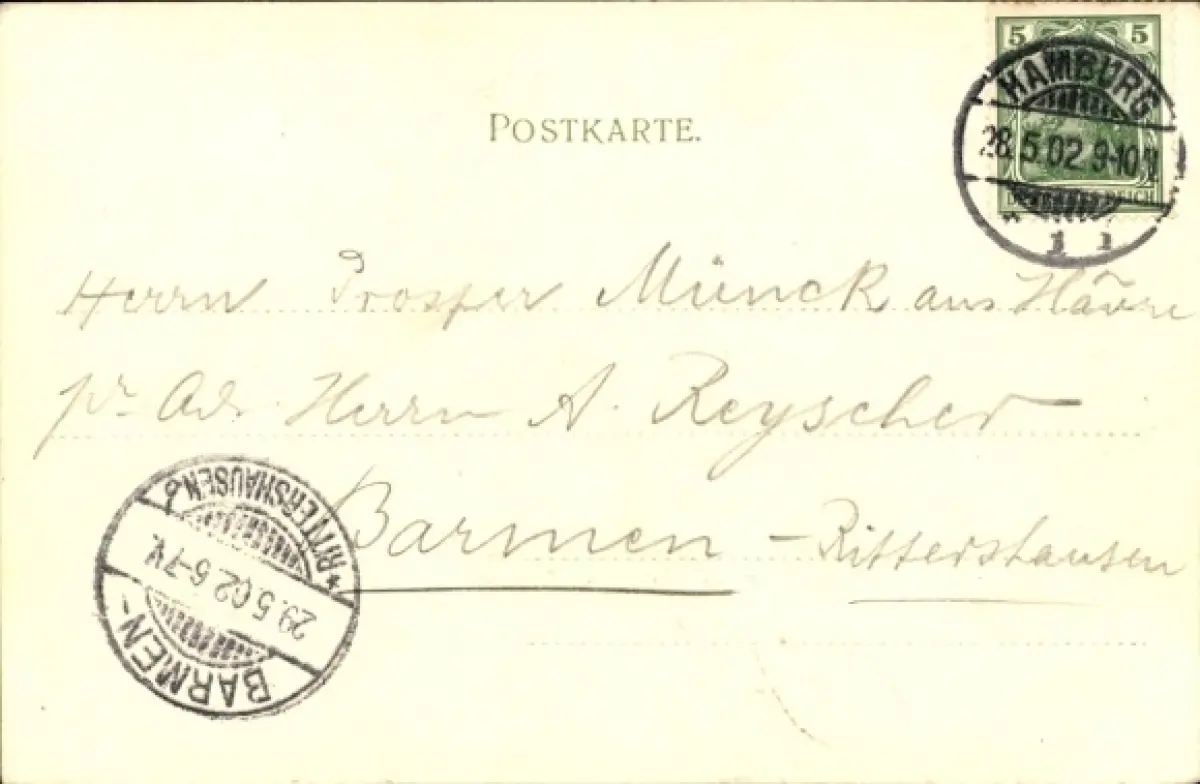 5 5
HAMBURG
28.5.02 9-10 V.
1 1
POSTKARTE.
Herrn Prosper Münck aus Hâvre
pr. Ad. Herrn A. Reyscher
Barmen - Rittershausen
BARMEN-
29.5.02 6-7 V.
RITTERSHAUSEN